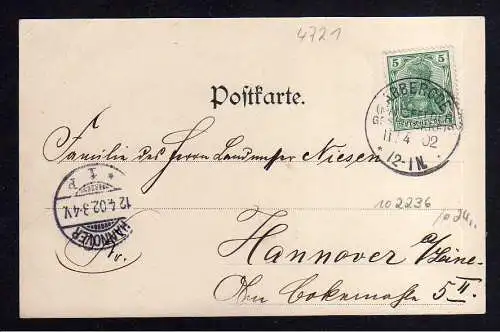 4721
5 5
DEUTSCHES REICH
11/4 02
* 12-1N. *
Postkarte.
An
Familie des Herrn Landmesser Niesen
HANNOVER
12.4.02.3-4V.
* 1 P
102236
Hannover a/Leine
Am Bokemahle 5 II.